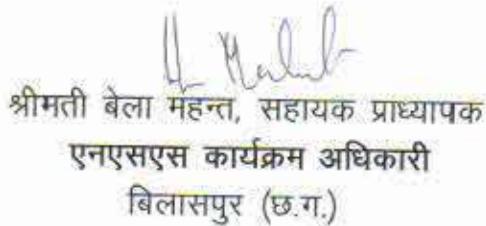 श्रीमती बेला महन्त, सहायक प्राध्यापक
एनएसएस कार्यक्रम अधिकारी
बिलासपुर (छ.ग.)